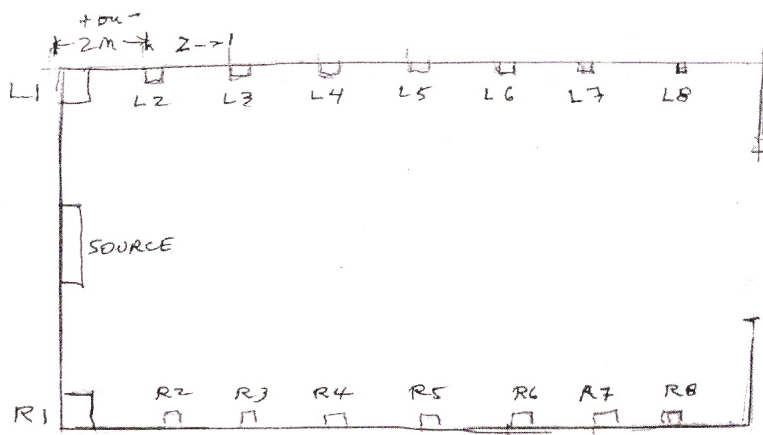 + ou -
2m 2-->
L1 L2 L3 L4 L5 L6 L7 L8
SOURCE
R2 R3 R4 R5 R6 R7 R8
R1